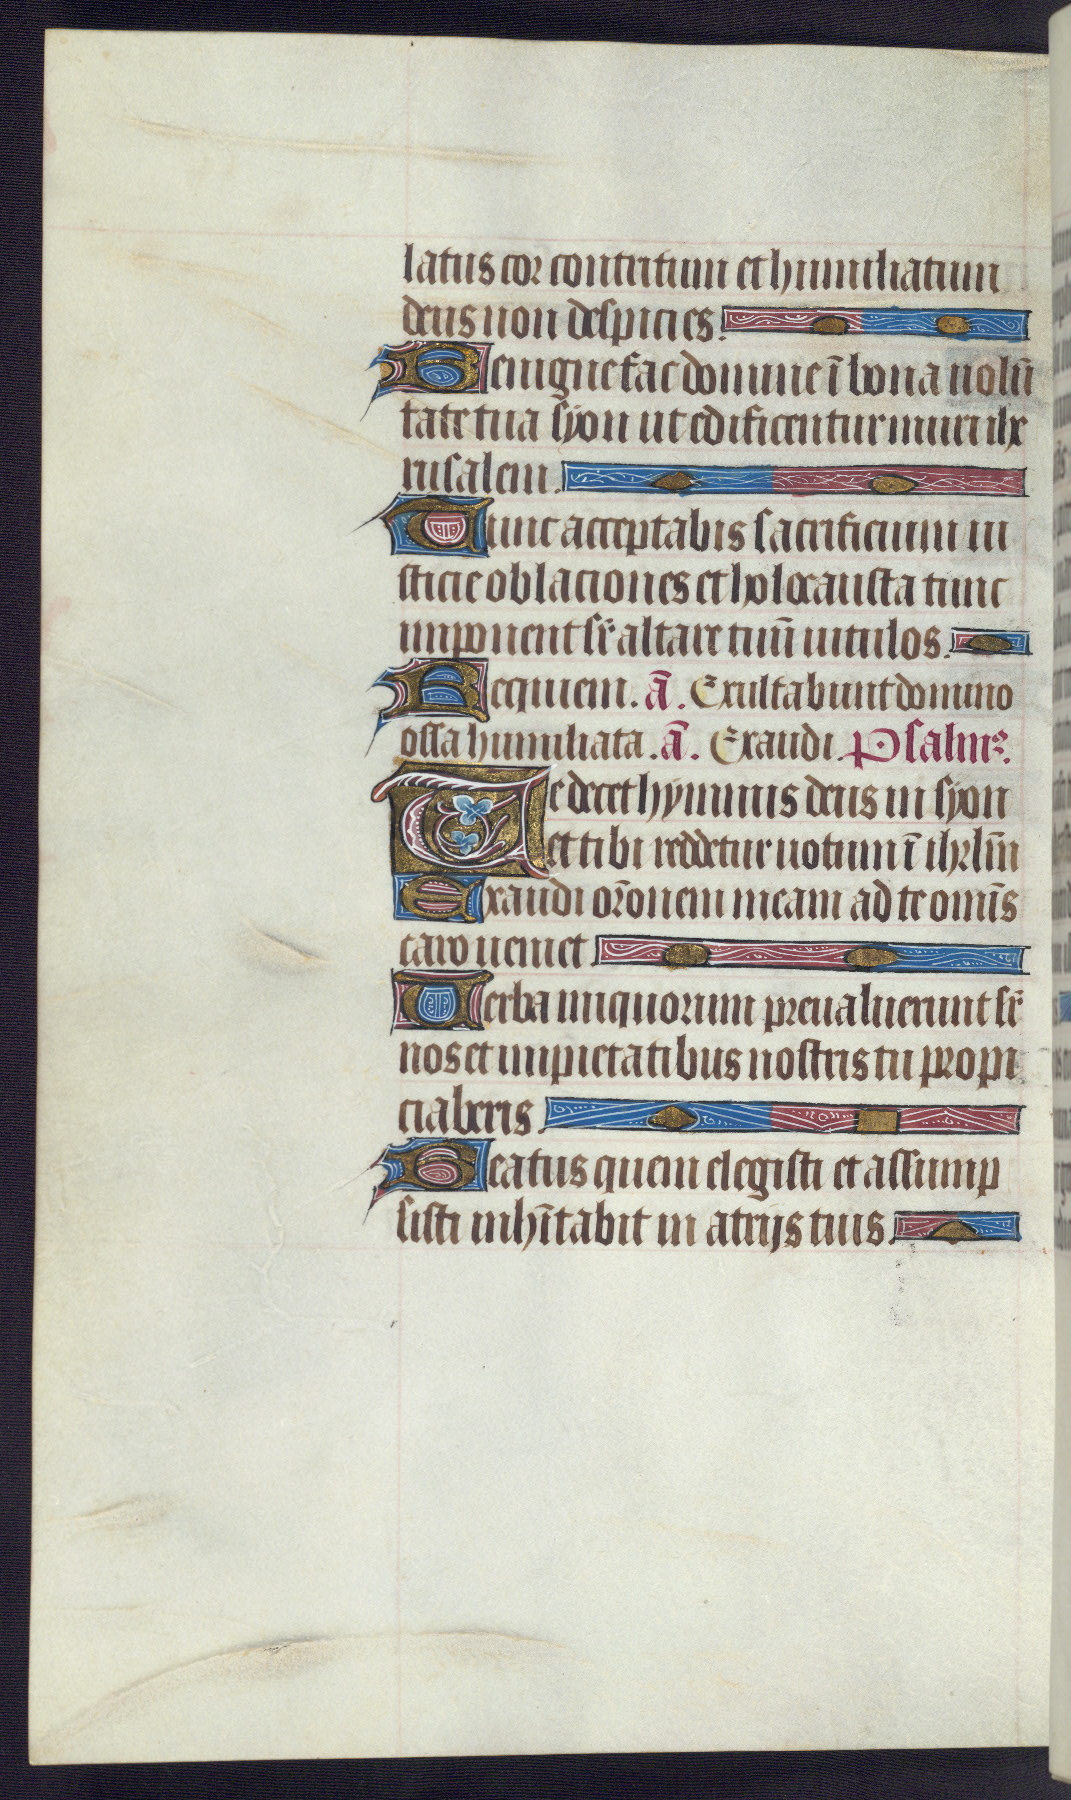 latus cor contritum et humiliatum
deus non despicies.
Benigne fac domine ī bona uolū
tate tua syon ut edificentur muri ihe
rusalem.
Tunc acceptabis sacrificium iu
sticie oblaciones et holocausta tunc
imponent sr̄ altare tuū uitulos.
Requiem. ā. Exultabunt domino
ossa humiliata. ā. Exaudi. Psalmꝰ.
Te decet hymnus deus in syon
et tibi reddetur uotum ī ihrlm̄
Exaudi or̄onem meam ad te omīs
caro ueniet.
Uerba iniquorum preualuerunt sr̄
nos et impietatibus nostris tu propi
ciaberis.
Beatus quem elegisti et assump
sisti inhītabit in atrijs tuis.